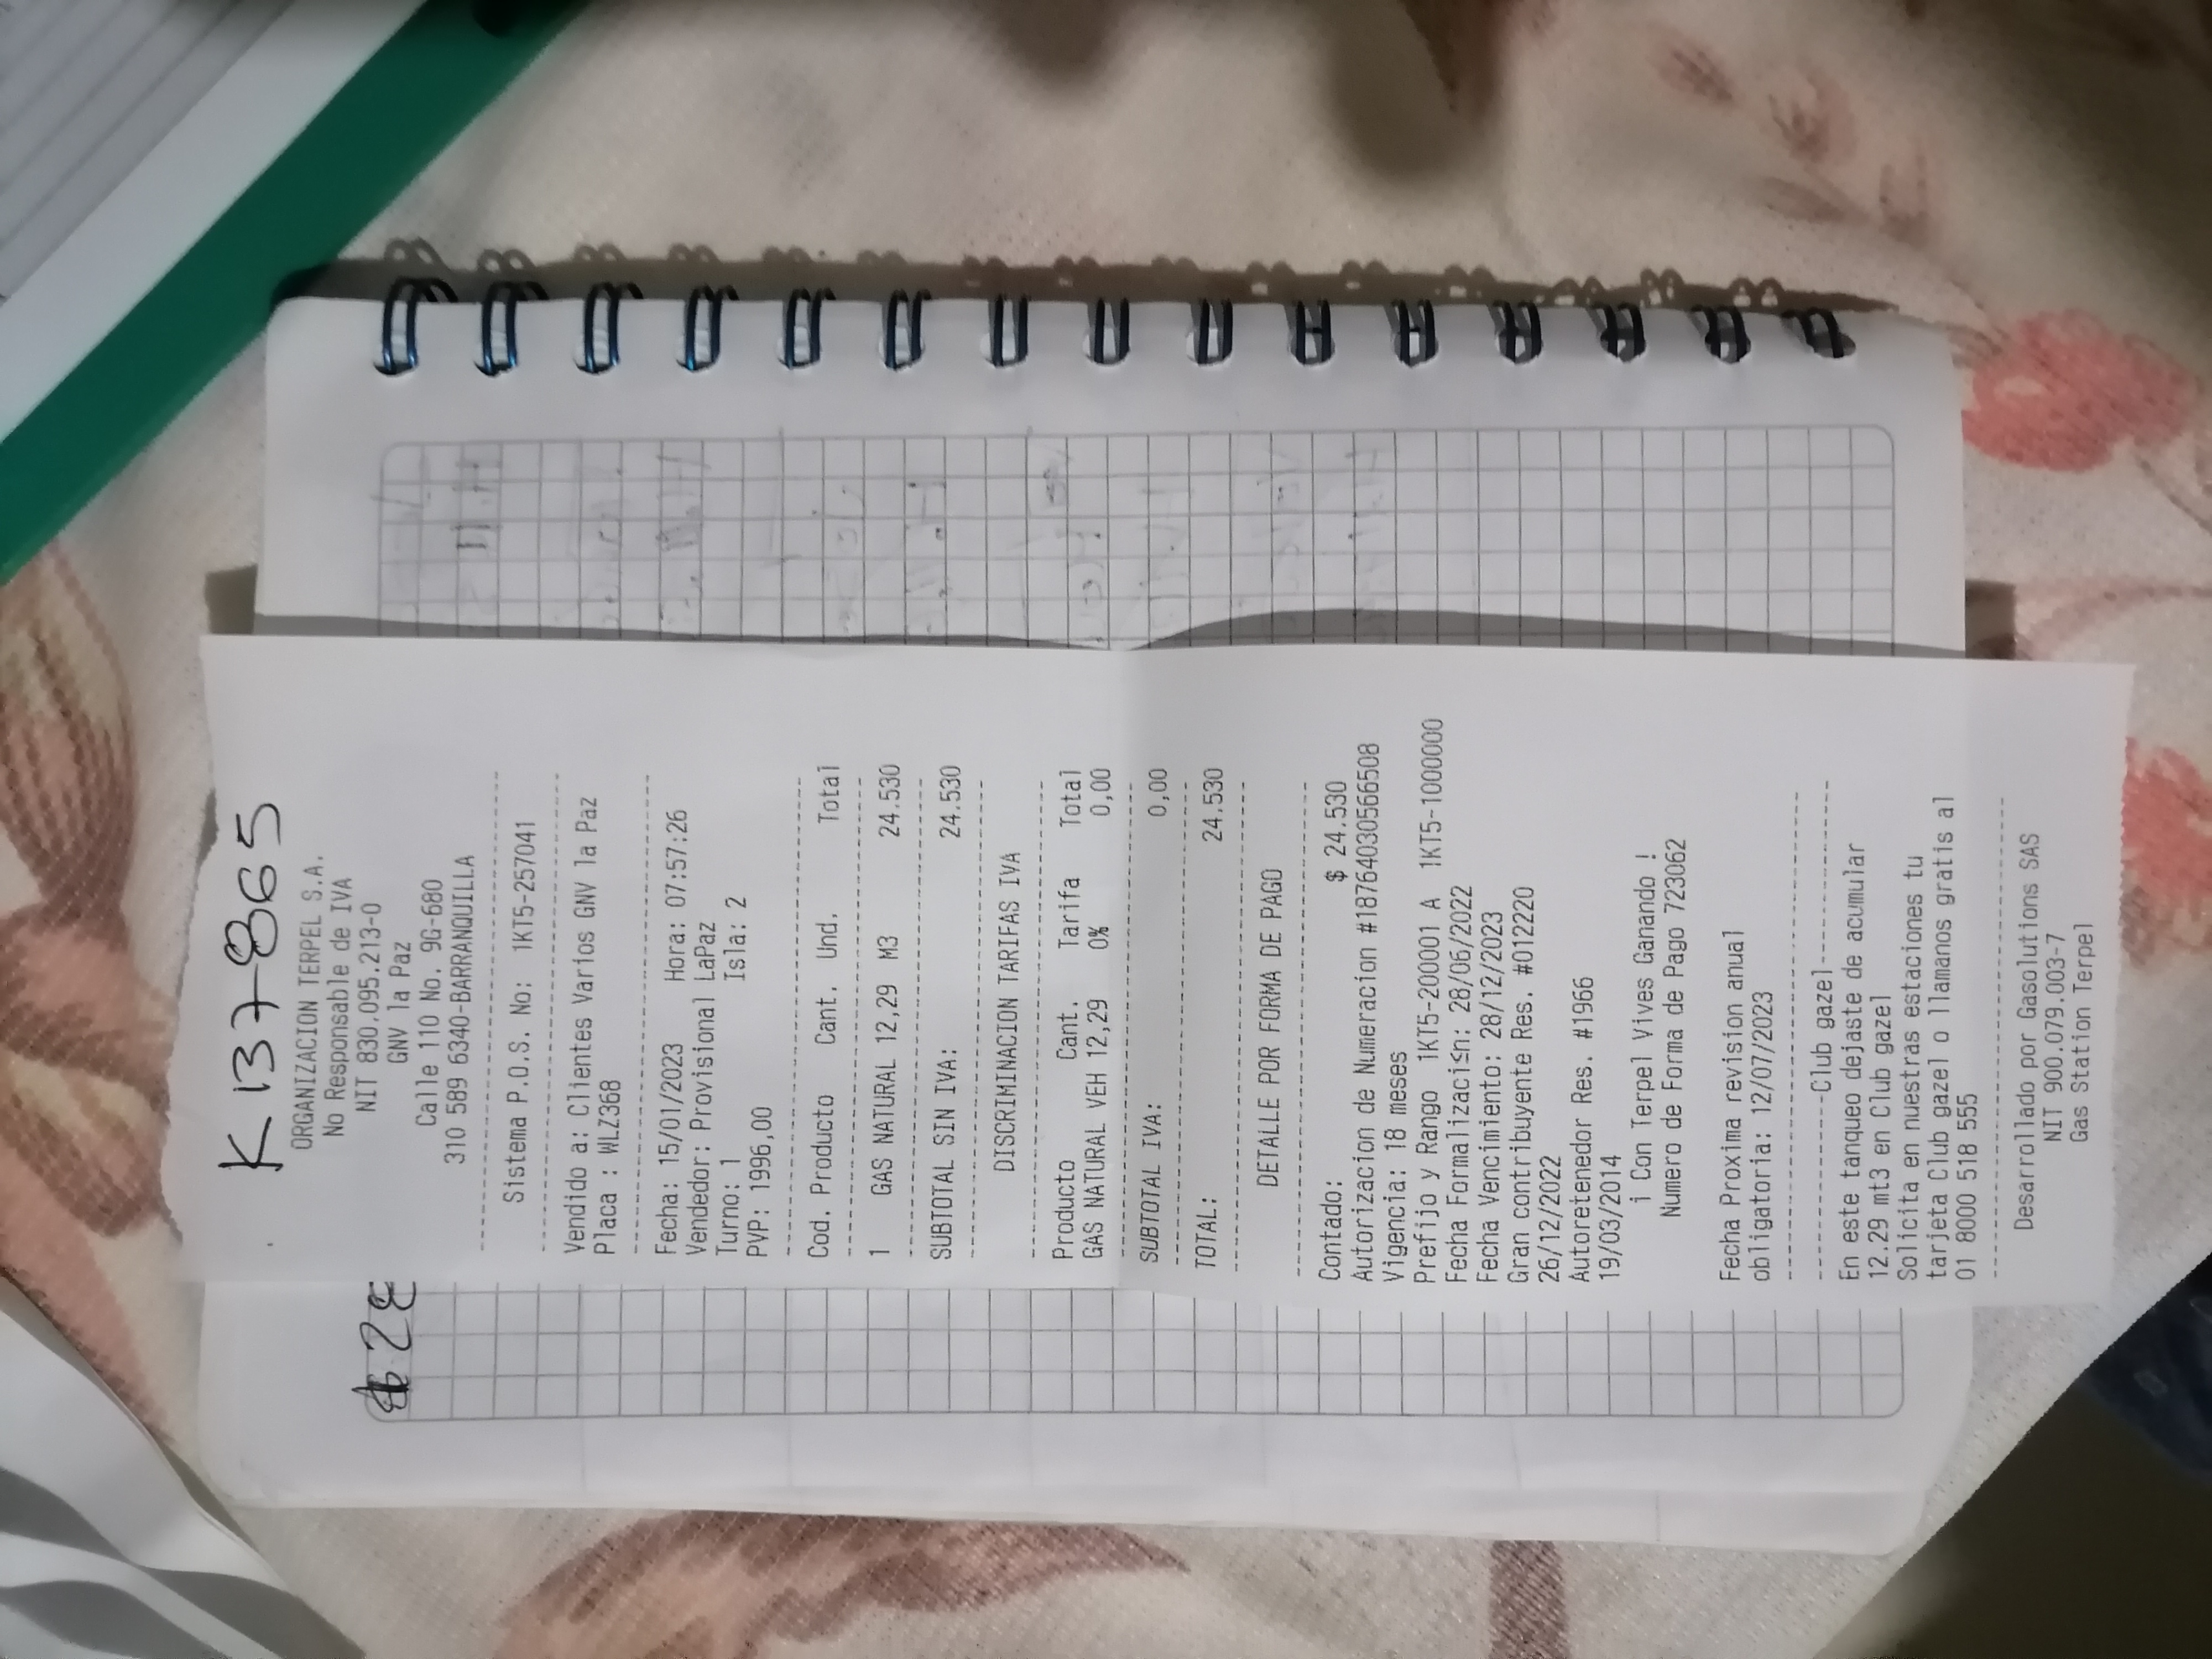 K 137865
ORGANIZACION TERPEL S.A.
No Responsable de IVA
NIT 830.095.213-0
GNV la Paz
Calle 110 No. 9G-680
310 589 6340-BARRANQUILLA
Sistema P.O.S. No: 1KT5-257041
Vendido a: Clientes Varios GNV la Paz
Placa : WLZ368
Fecha: 15/01/2023 Hora: 07:57:26
Vendedor: Provisional LaPaz
Turno: 1 Isla: 2
PVP: 1996,00
Cod. Producto Cant. Und. Total
1 GAS NATURAL 12,29 M3 24.530
SUBTOTAL SIN IVA: 24.530
DISCRIMINACION TARIFAS IVA
Producto Cant. Tarifa Total
GAS NATURAL VEH 12,29 0% 0,00
SUBTOTAL IVA: 0,00
TOTAL: 24.530
DETALLE POR FORMA DE PAGO
Contado: $ 24.530
Autorizacion de Numeracion #18764030566508
Vigencia: 18 meses
Prefijo y Rango 1KT5-200001 A 1KT5-1000000
Fecha Formalizaci≤n: 28/06/2022
Fecha Vencimiento: 28/12/2023
Gran contribuyente Res. #012220
26/12/2022
Autoretenedor Res. #1966
19/03/2014
¡ Con Terpel Vives Ganando !
Numero de Forma de Pago 723062
Fecha Proxima revision anual
obligatoria: 12/07/2023
----------Club gazel----------
En este tanqueo dejaste de acumular
12.29 mt3 en Club gazel
Solicita en nuestras estaciones tu
tarjeta Club gazel o llamanos gratis al
01 8000 518 555
Desarrollado por Gasolutions SAS
NIT 900.079.003-7
Gas Station Terpel